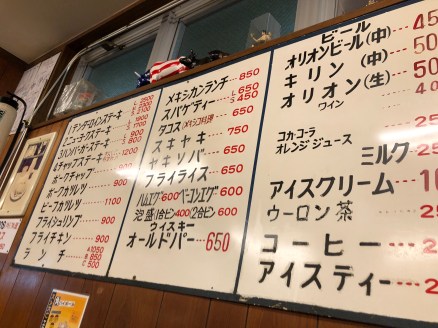 1テンダーロインステーキ
2ニューヨークステーキ
3ハンバーガーステーキ
4チャップステーキ 1200
ポークチャップ 900
ポークカツレツ 900
ビーフカツレツ 1100
フライシュリンプ 900
フライチキン 900
ランチ A1050 B850 C500
メキシカンランチ 850
スパゲティー L650 S450
タコス(メキシコ料理) 750
スキヤキ 650
ヤキソバ 650
フライライス 650
ハムエグ600 ベーコンエグ600
泡盛(1合ビン400)(2合ビン600)
ウイスキー
オールドパー 650
ビール
オリオンビール(中)
キリン(中)
オリオン(生)
ワイン
コカ・コーラ
オレンジジュース
ミルク
アイスクリーム
ウーロン茶
コーヒー
アイスティー